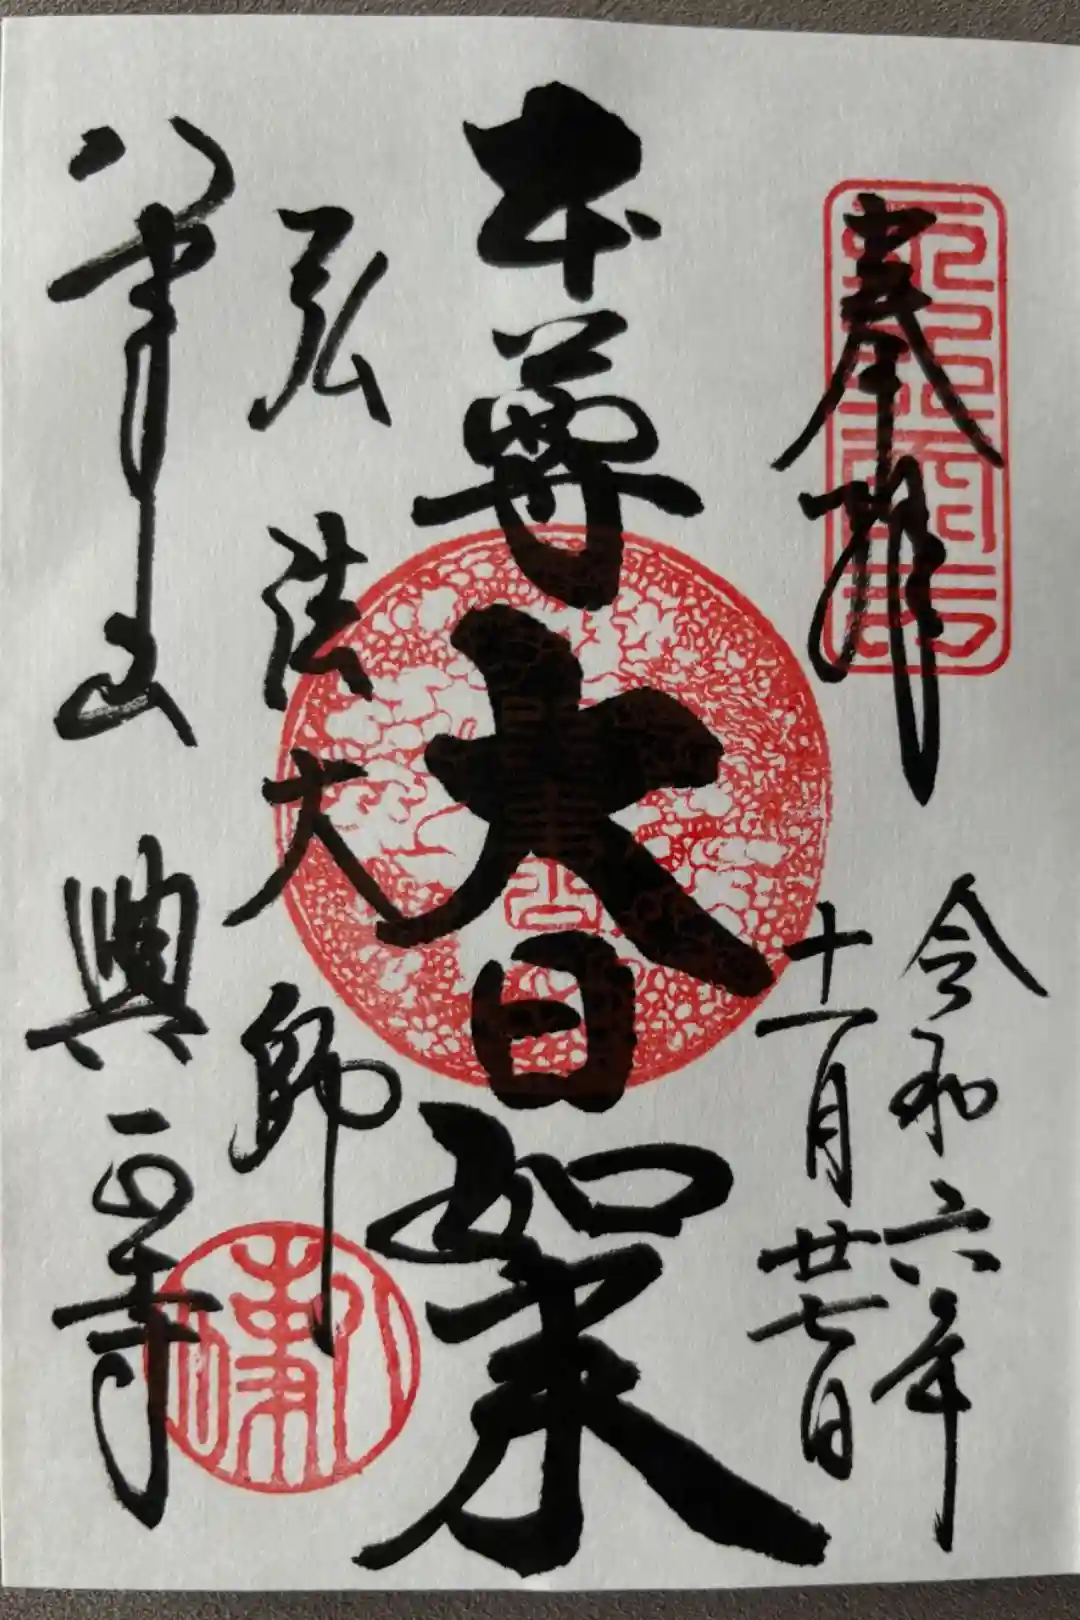 奉拝
令和六年
十一月廿七日
本尊大日如来
弘法大師
八事山 興正寺